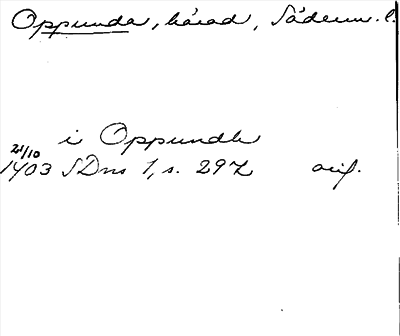 Oppunda, härad, Söderm. l.
i Oppundh
21/10
1403 SDns 1, s. 297 orig.